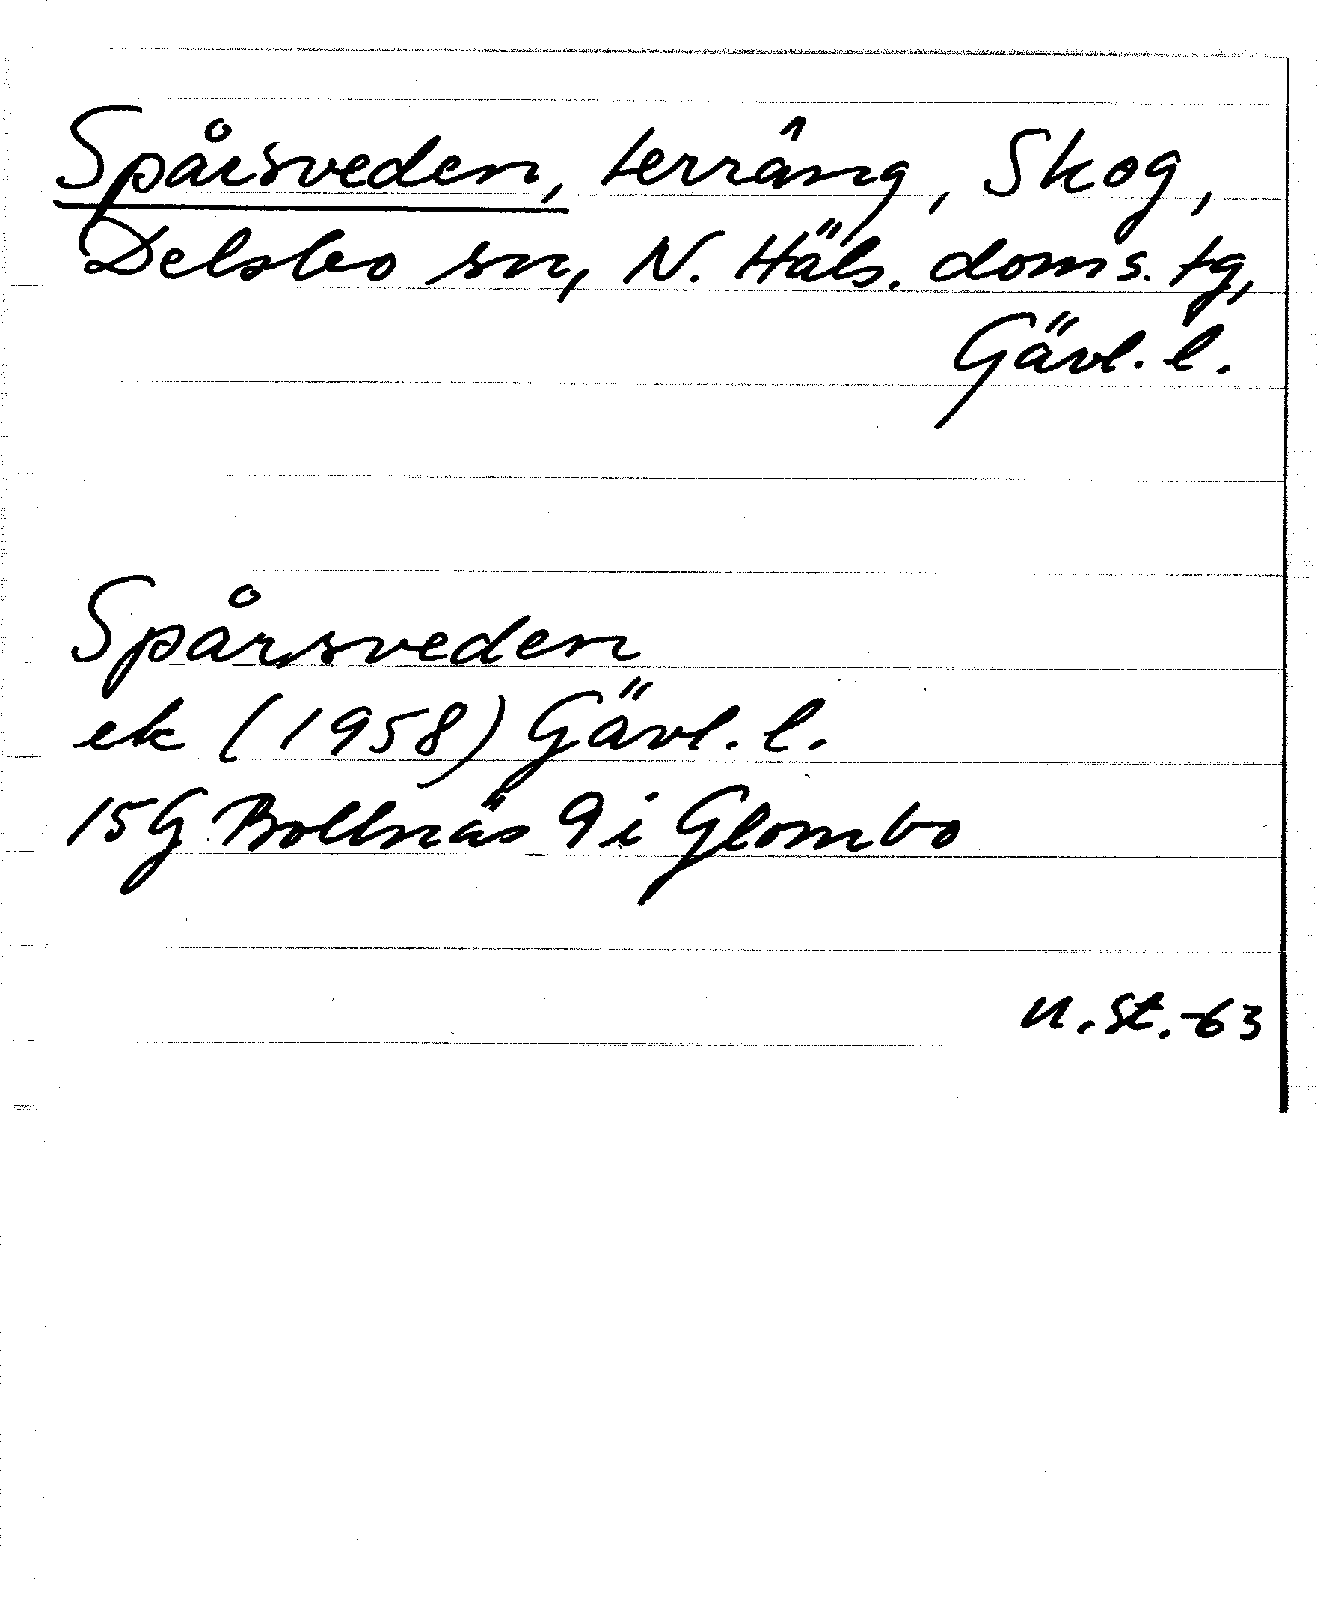 Spårsveden, terräng, Skog,
Delsbo sn, N. Häls. doms. tg,
Gävl. l.
Spårsveden
ek (1958) Gävl. l.
15G Bollnäs 9i Glombo
U. St. -63